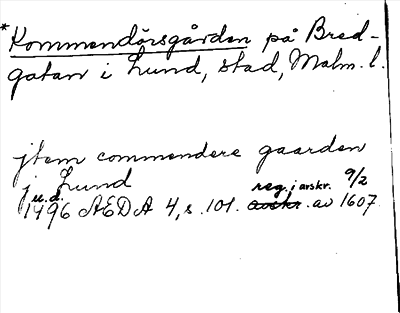 *Kommendörsgården på Bred-
gatan i Lund, stad, Malm. l.
jtem commendere gaarden
j Lund
u.d. reg. i avskr. 9/2
1496 AEDA 4, s. 101. avskr. av 1607